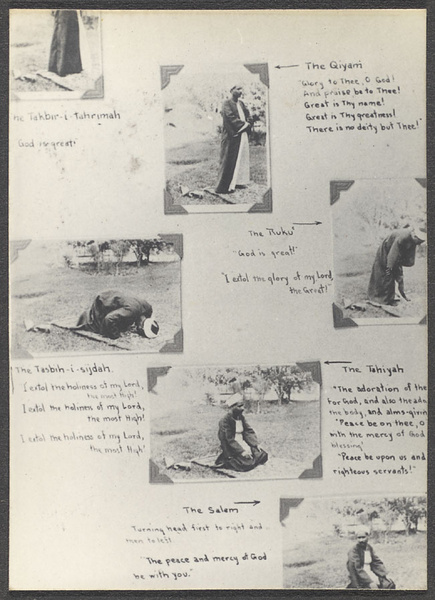 The Qiyam
"Glory to Thee, O God!
And praise be to Thee!
Great is Thy name!
Great is Thy greatness!
There is no deity but Thee!"
he Takbir-i-Tahrimah
God is great!
The Ruku'
"God is great!"
"I extol the glory of my Lord,
the Great!"
The Tasbih-i-sijdah.
I extol the holiness of my Lord,
the most High!
I extol the holiness of my Lord,
the most High!
I extol the holiness of my Lord,
the most High!
The Tahiyah
"The adoration of the
for God, and also the ado
the body, and alms-givin
"Peace be on thee, O
with the mercy of God
blessing"
"Peace be upon us and
righteous servants!"
The Salam
Turning head first to right and
to left
"The peace and mercy of God
be with you."